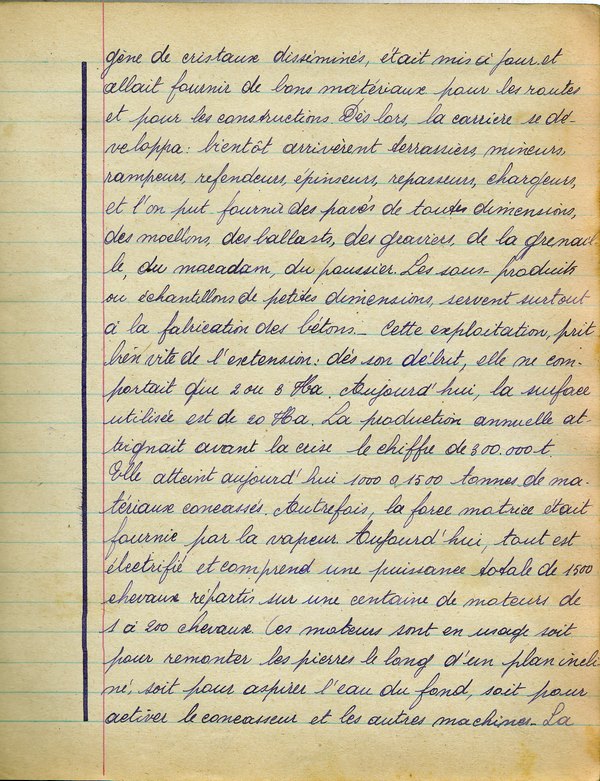 gène de cristaux disséminés, était mis à jour et
allait fournir de bons matériaux pour les routes
et pour les constructions. Dès lors, la carrière se dé-
veloppa : bientôt arrivèrent terrassiers, mineurs,
rampeurs, refendeurs, épinseurs, repasseurs, chargeurs,
et l'on put fournir des pavés de toutes dimensions,
des moellons, des ballasts, des graviers, de la grenail-
le, du macadam, du poussier. Les sous-produits
ou échantillons de petites dimensions, servent surtout
à la fabrication des bétons_ Cette exploitation, prit
bien vite de l'extension : dès son début, elle ne com-
portait que 2 ou 3 Ha. Aujourd'hui, la surface
utilisée est de 20 Ha. La production annuelle at-
teignait avant la crise le chiffre de 300.000 t.
Elle atteint aujourd'hui 1000 à 1500 tonnes de ma-
tériaux concassés. Autrefois, la force motrice était
fournie par la vapeur. Aujourd'hui, tout est
électrifié et comprend une puissance totale de 1500
chevaux répartis sur une centaine de moteurs de
1 à 200 chevaux. Ces moteurs sont en usage soit
pour remonter les pierres le long d'un plan incli
né, soit pour aspirer l'eau du fond, soit pour
activer le concasseur et les autres machines_ La